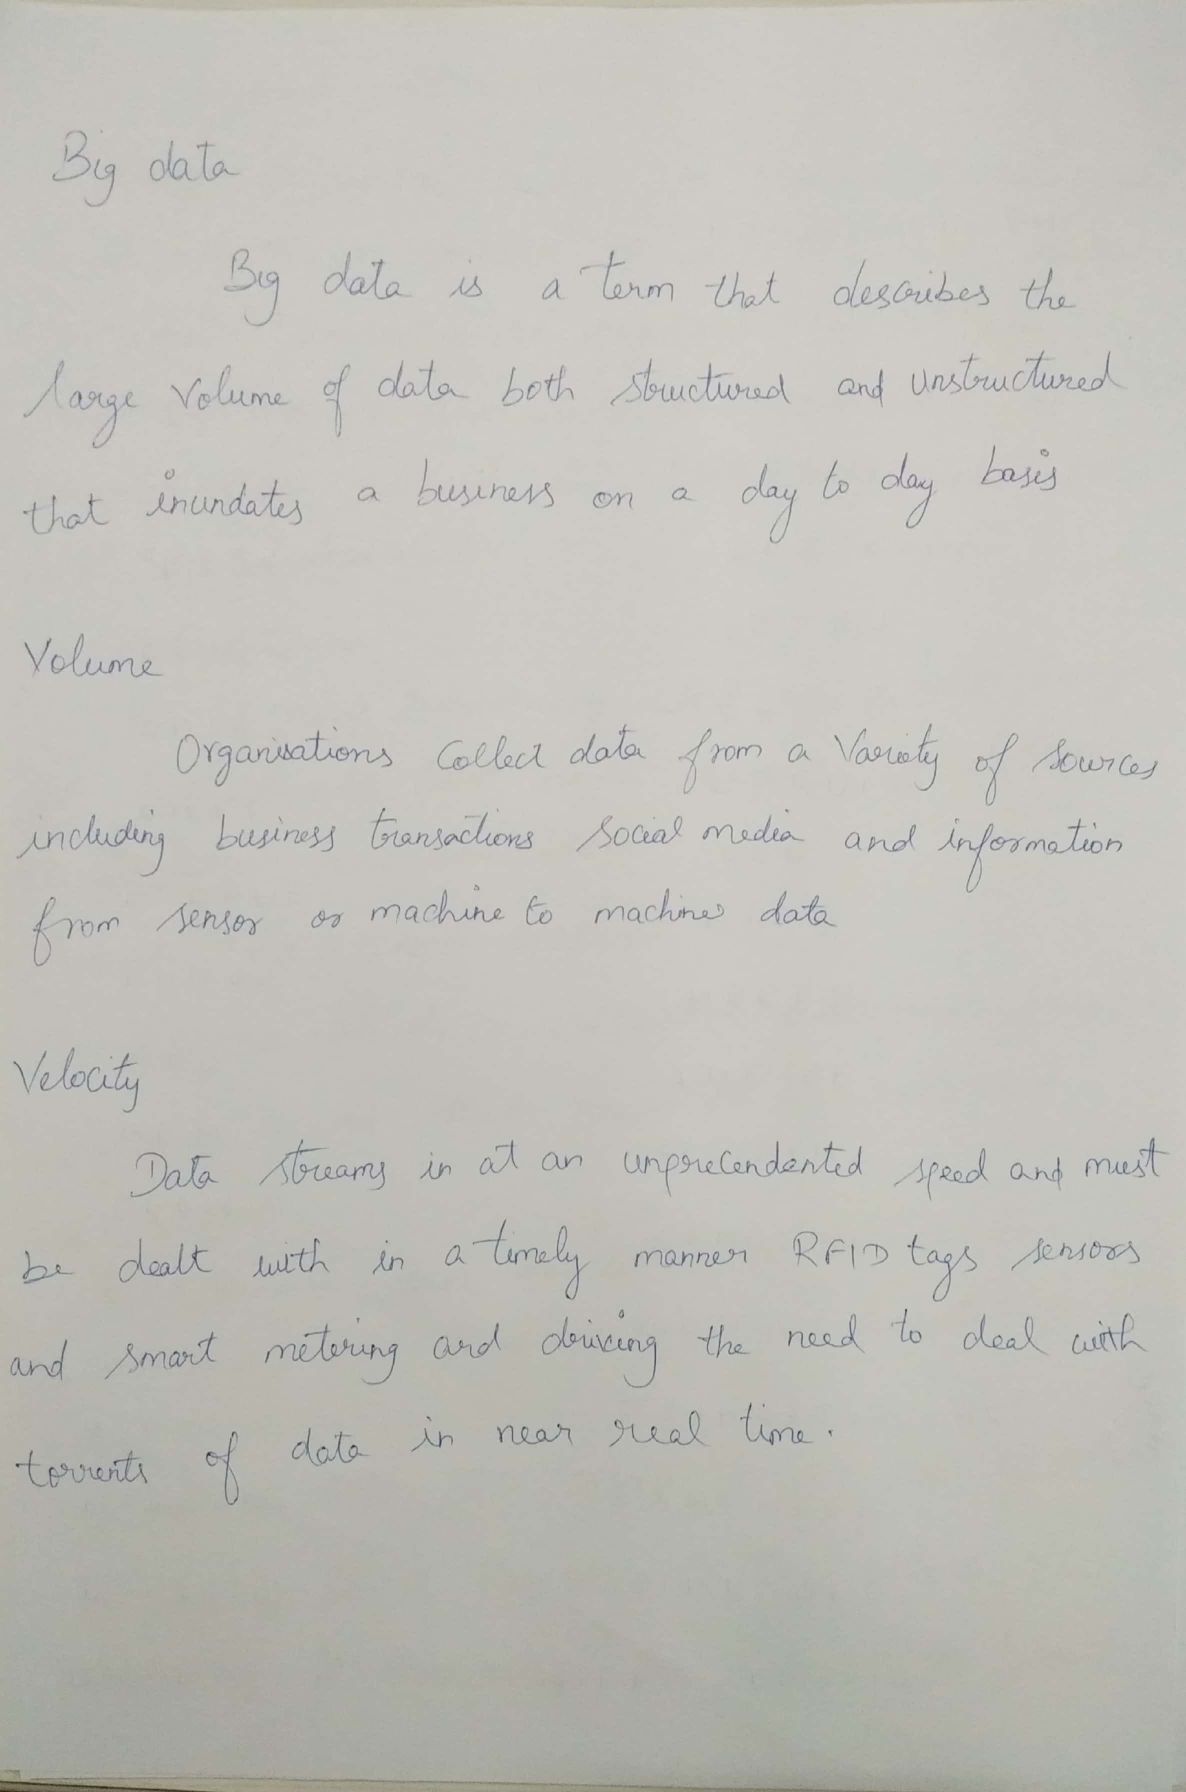 Big data
Big data is a term that describes the
large volume of data both structured and unstructured
that inundates a business on a day to day basis
Volume
Organisations collect data from a variety of sources
including business transactions social media and information
from sensor or machine to machine data
Velocity
Data streams in at an unprecendented speed and must
be dealt with in a timely manner RFID tags sensors
and smart metering and driving the need to deal with
torrents of data in near real time.